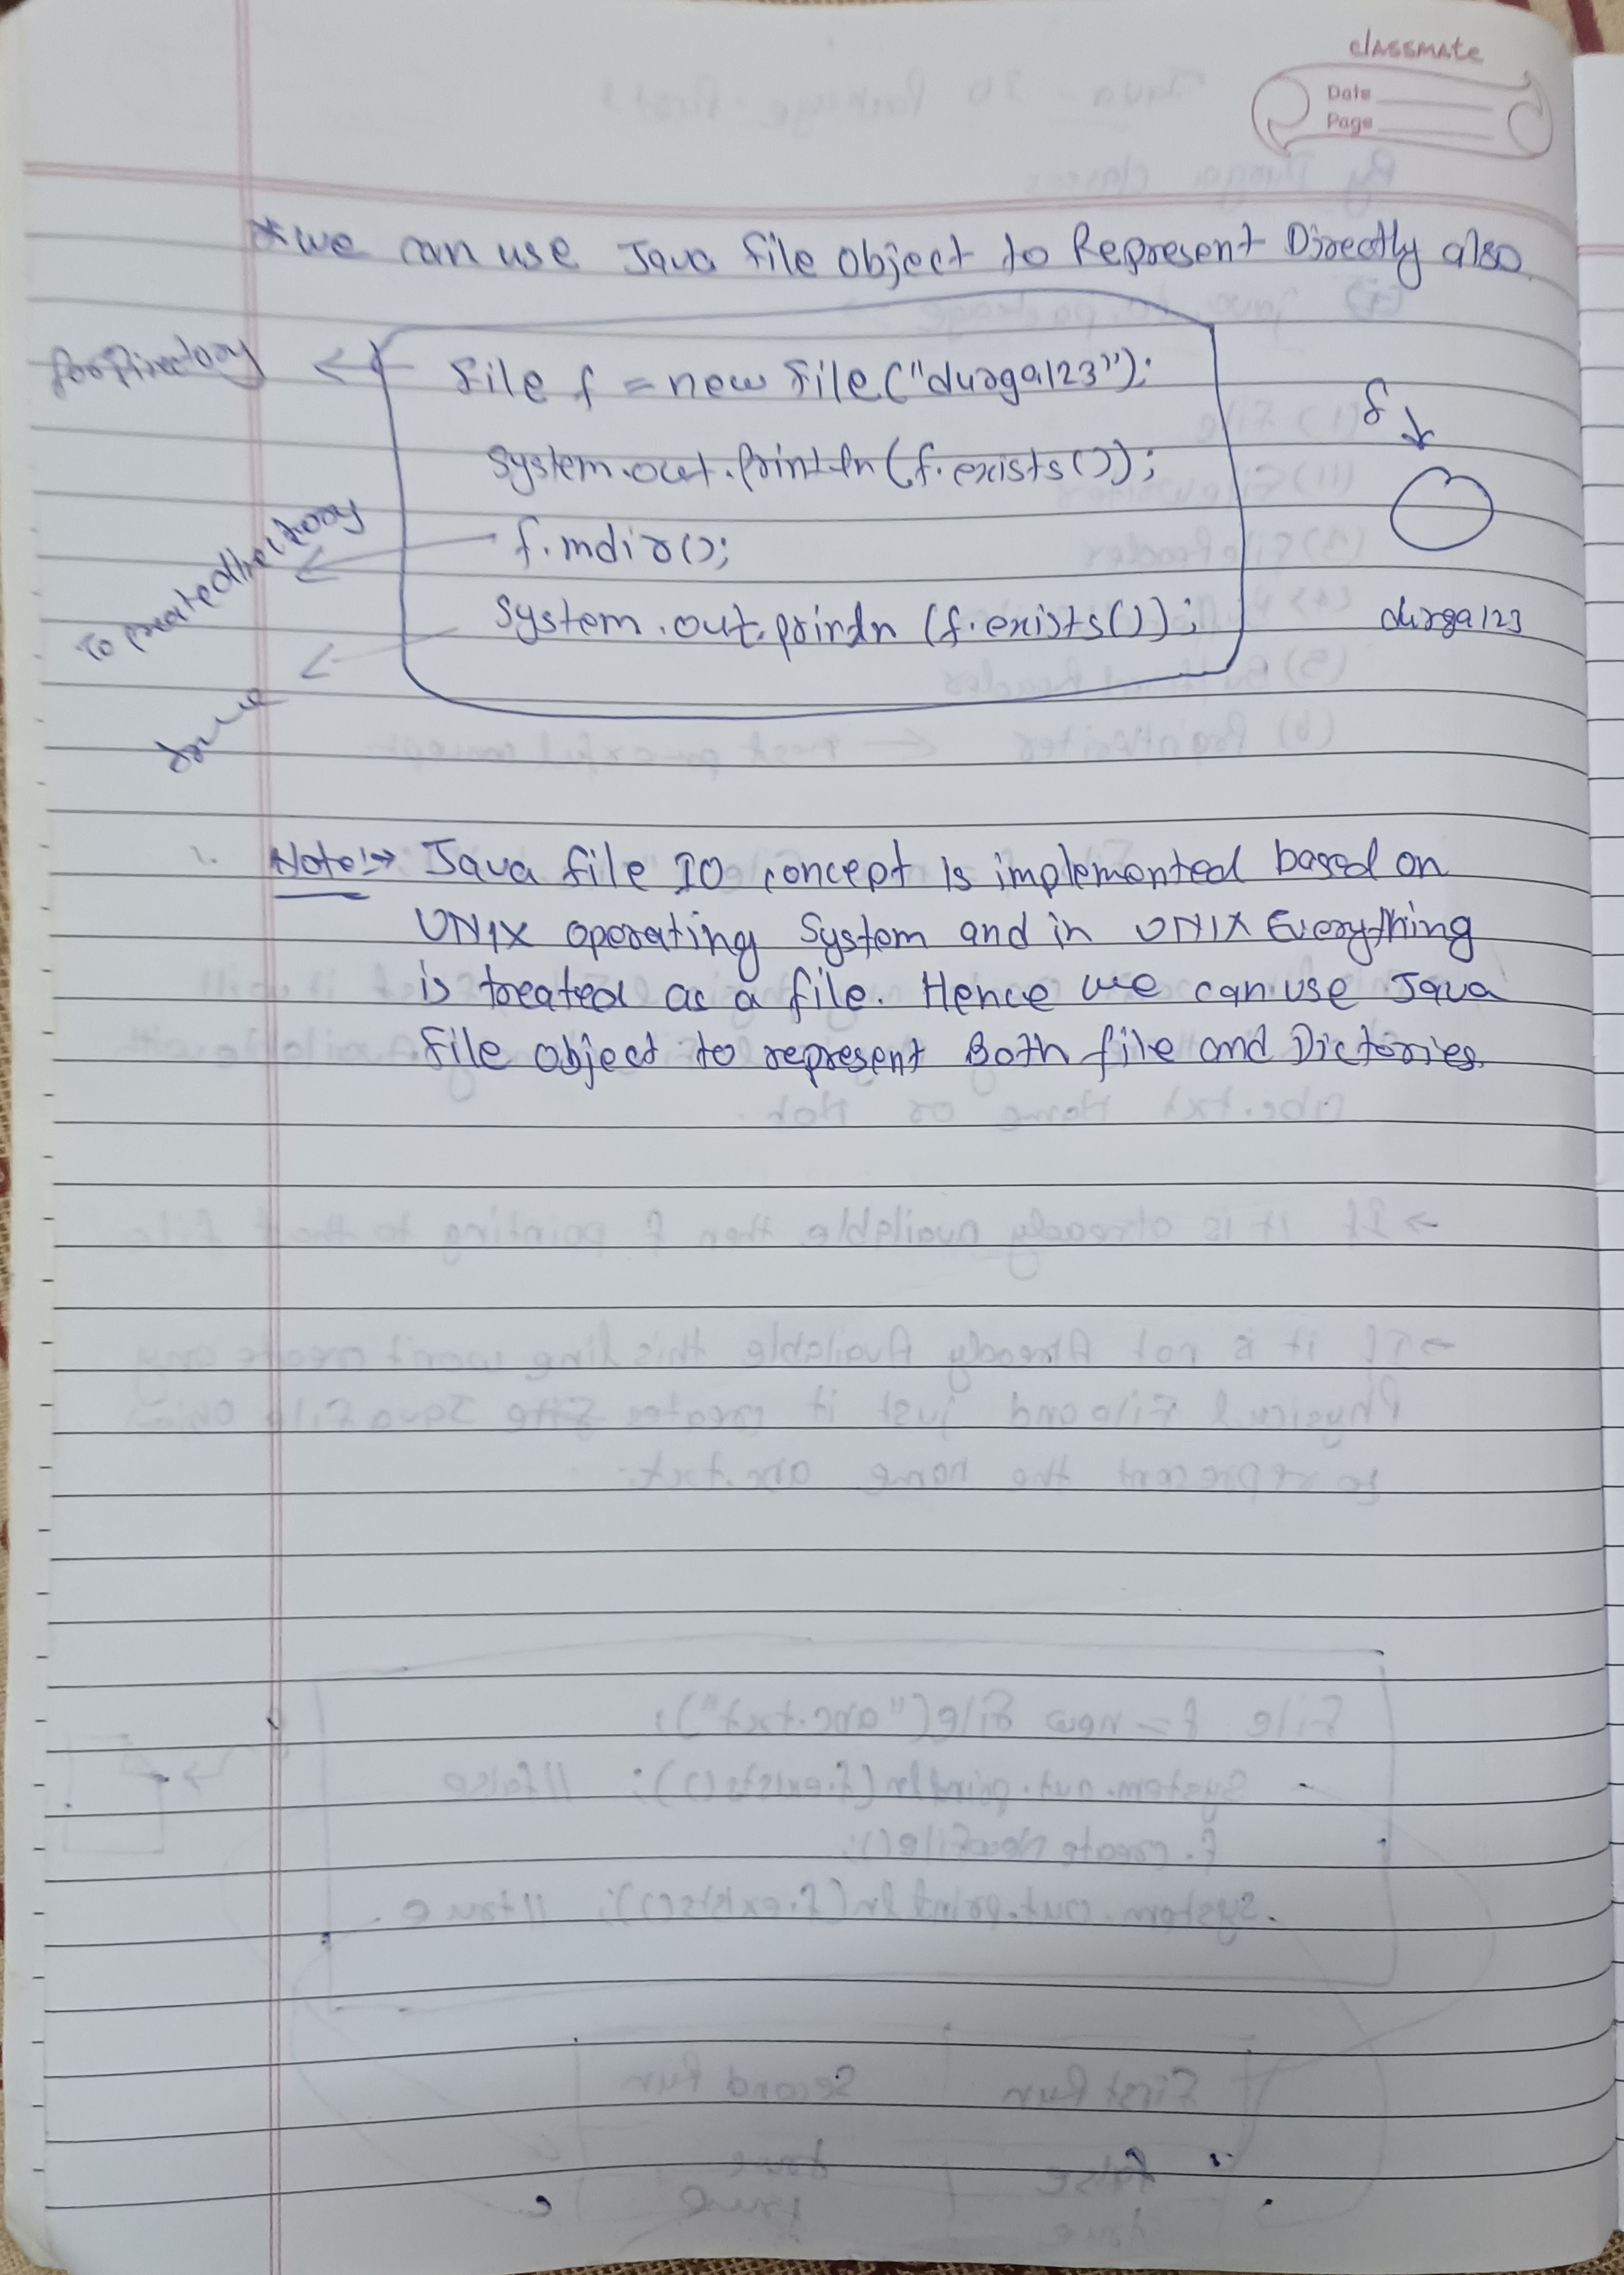 classmate
Date
Page
* we can use Java file object to Represent Directly also
for Directory
File f = new File("durga123");
System.out.println(f.exists());
f.mdir();
To create directory
System.out.println (f.exists());
true
f
durga123
Note:→ Java file IO concept is implemented based on
UNIX operating System and in UNIX Everything
is treated as a file. Hence we can use Java
File object to represent Both file and Dictories.